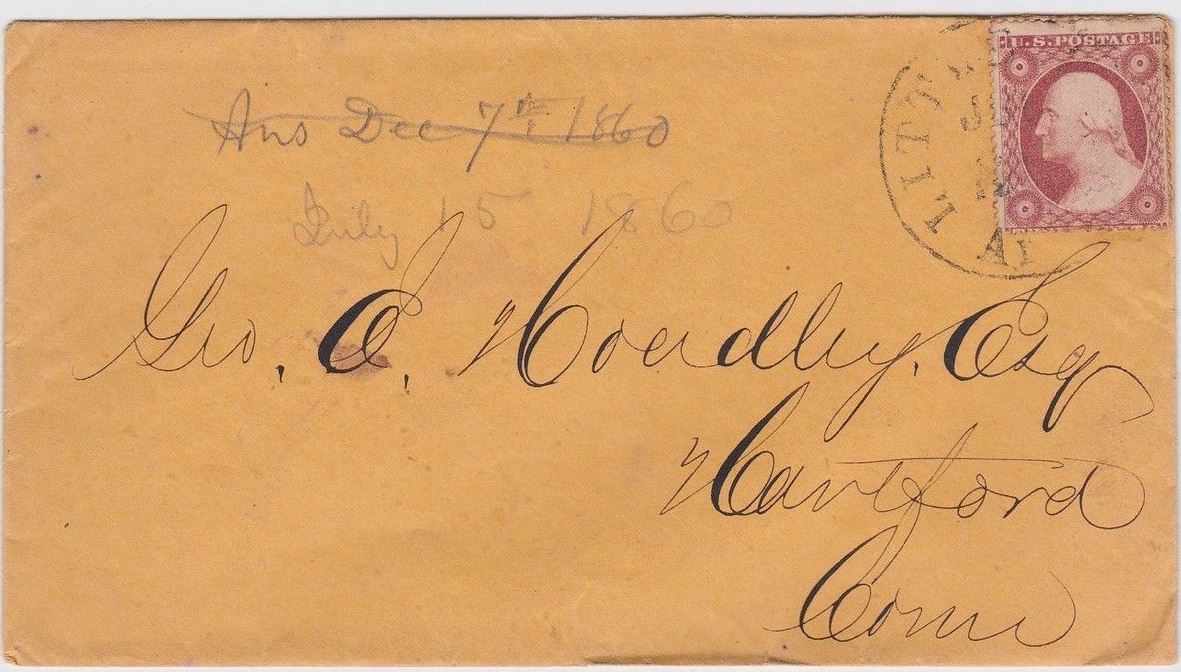 U.S. POSTAGE
LITT
Ans Dec 7th 1860
July 15 1860
Geo. E. Hoadley. Esq
Hartford
Conn